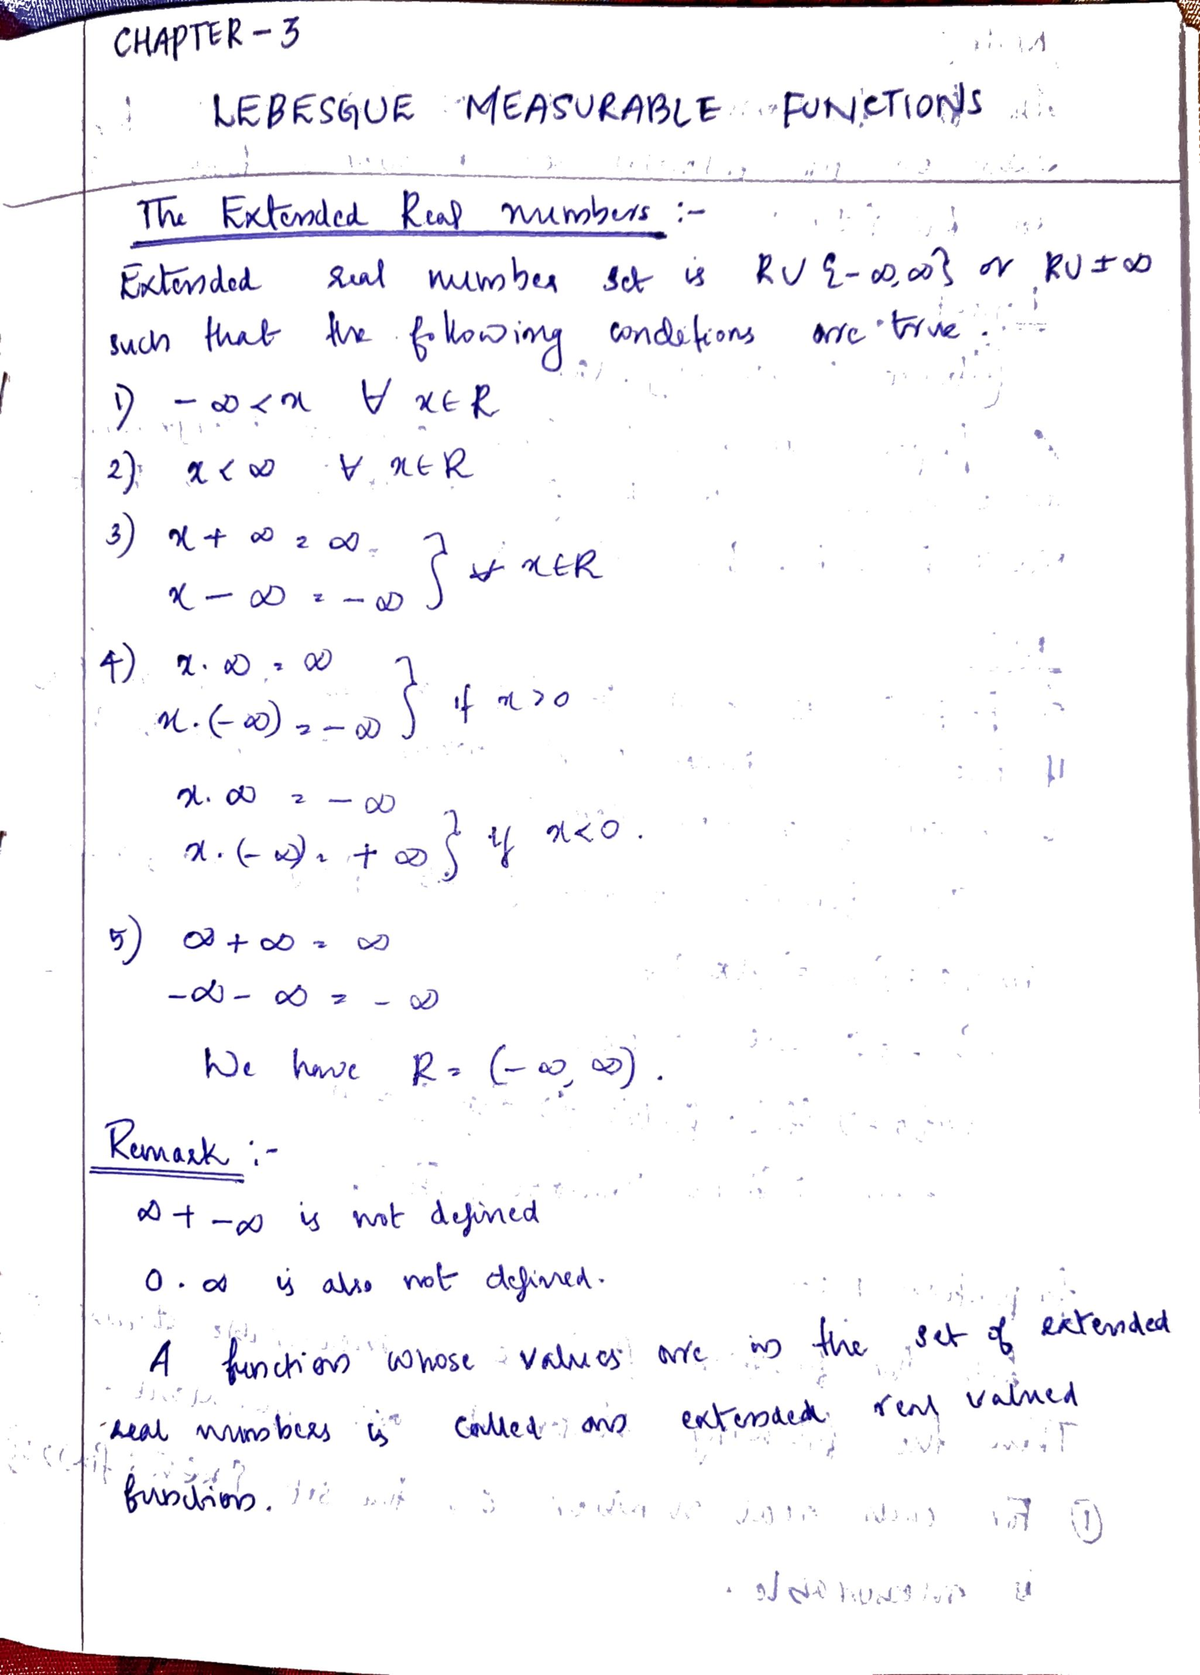 CHAPTER - 3
LEBESGUE MEASURABLE FUNCTIONS
The Extended Real numbers :-
Extended real number set is R∪{-∞,∞} or R∪±∞
such that the following conditions are true.
1) -∞ < x ∀ x∈R
2) x < ∞ ∀ x∈R
3) x + ∞ = ∞
x - ∞ = -∞ } ∀ x∈R
4) x.∞ = ∞
x.(-∞) = -∞ } if x>0
x.∞ = -∞
x.(-∞) = +∞ } if x<0.
5) ∞ + ∞ = ∞
-∞ - ∞ = -∞
We have R = (-∞, ∞).
Remark :-
∞ + -∞ is not defined
0.∞ is also not defined.
A function whose values are in the set of extended
real numbers is called an extended real valued
function.